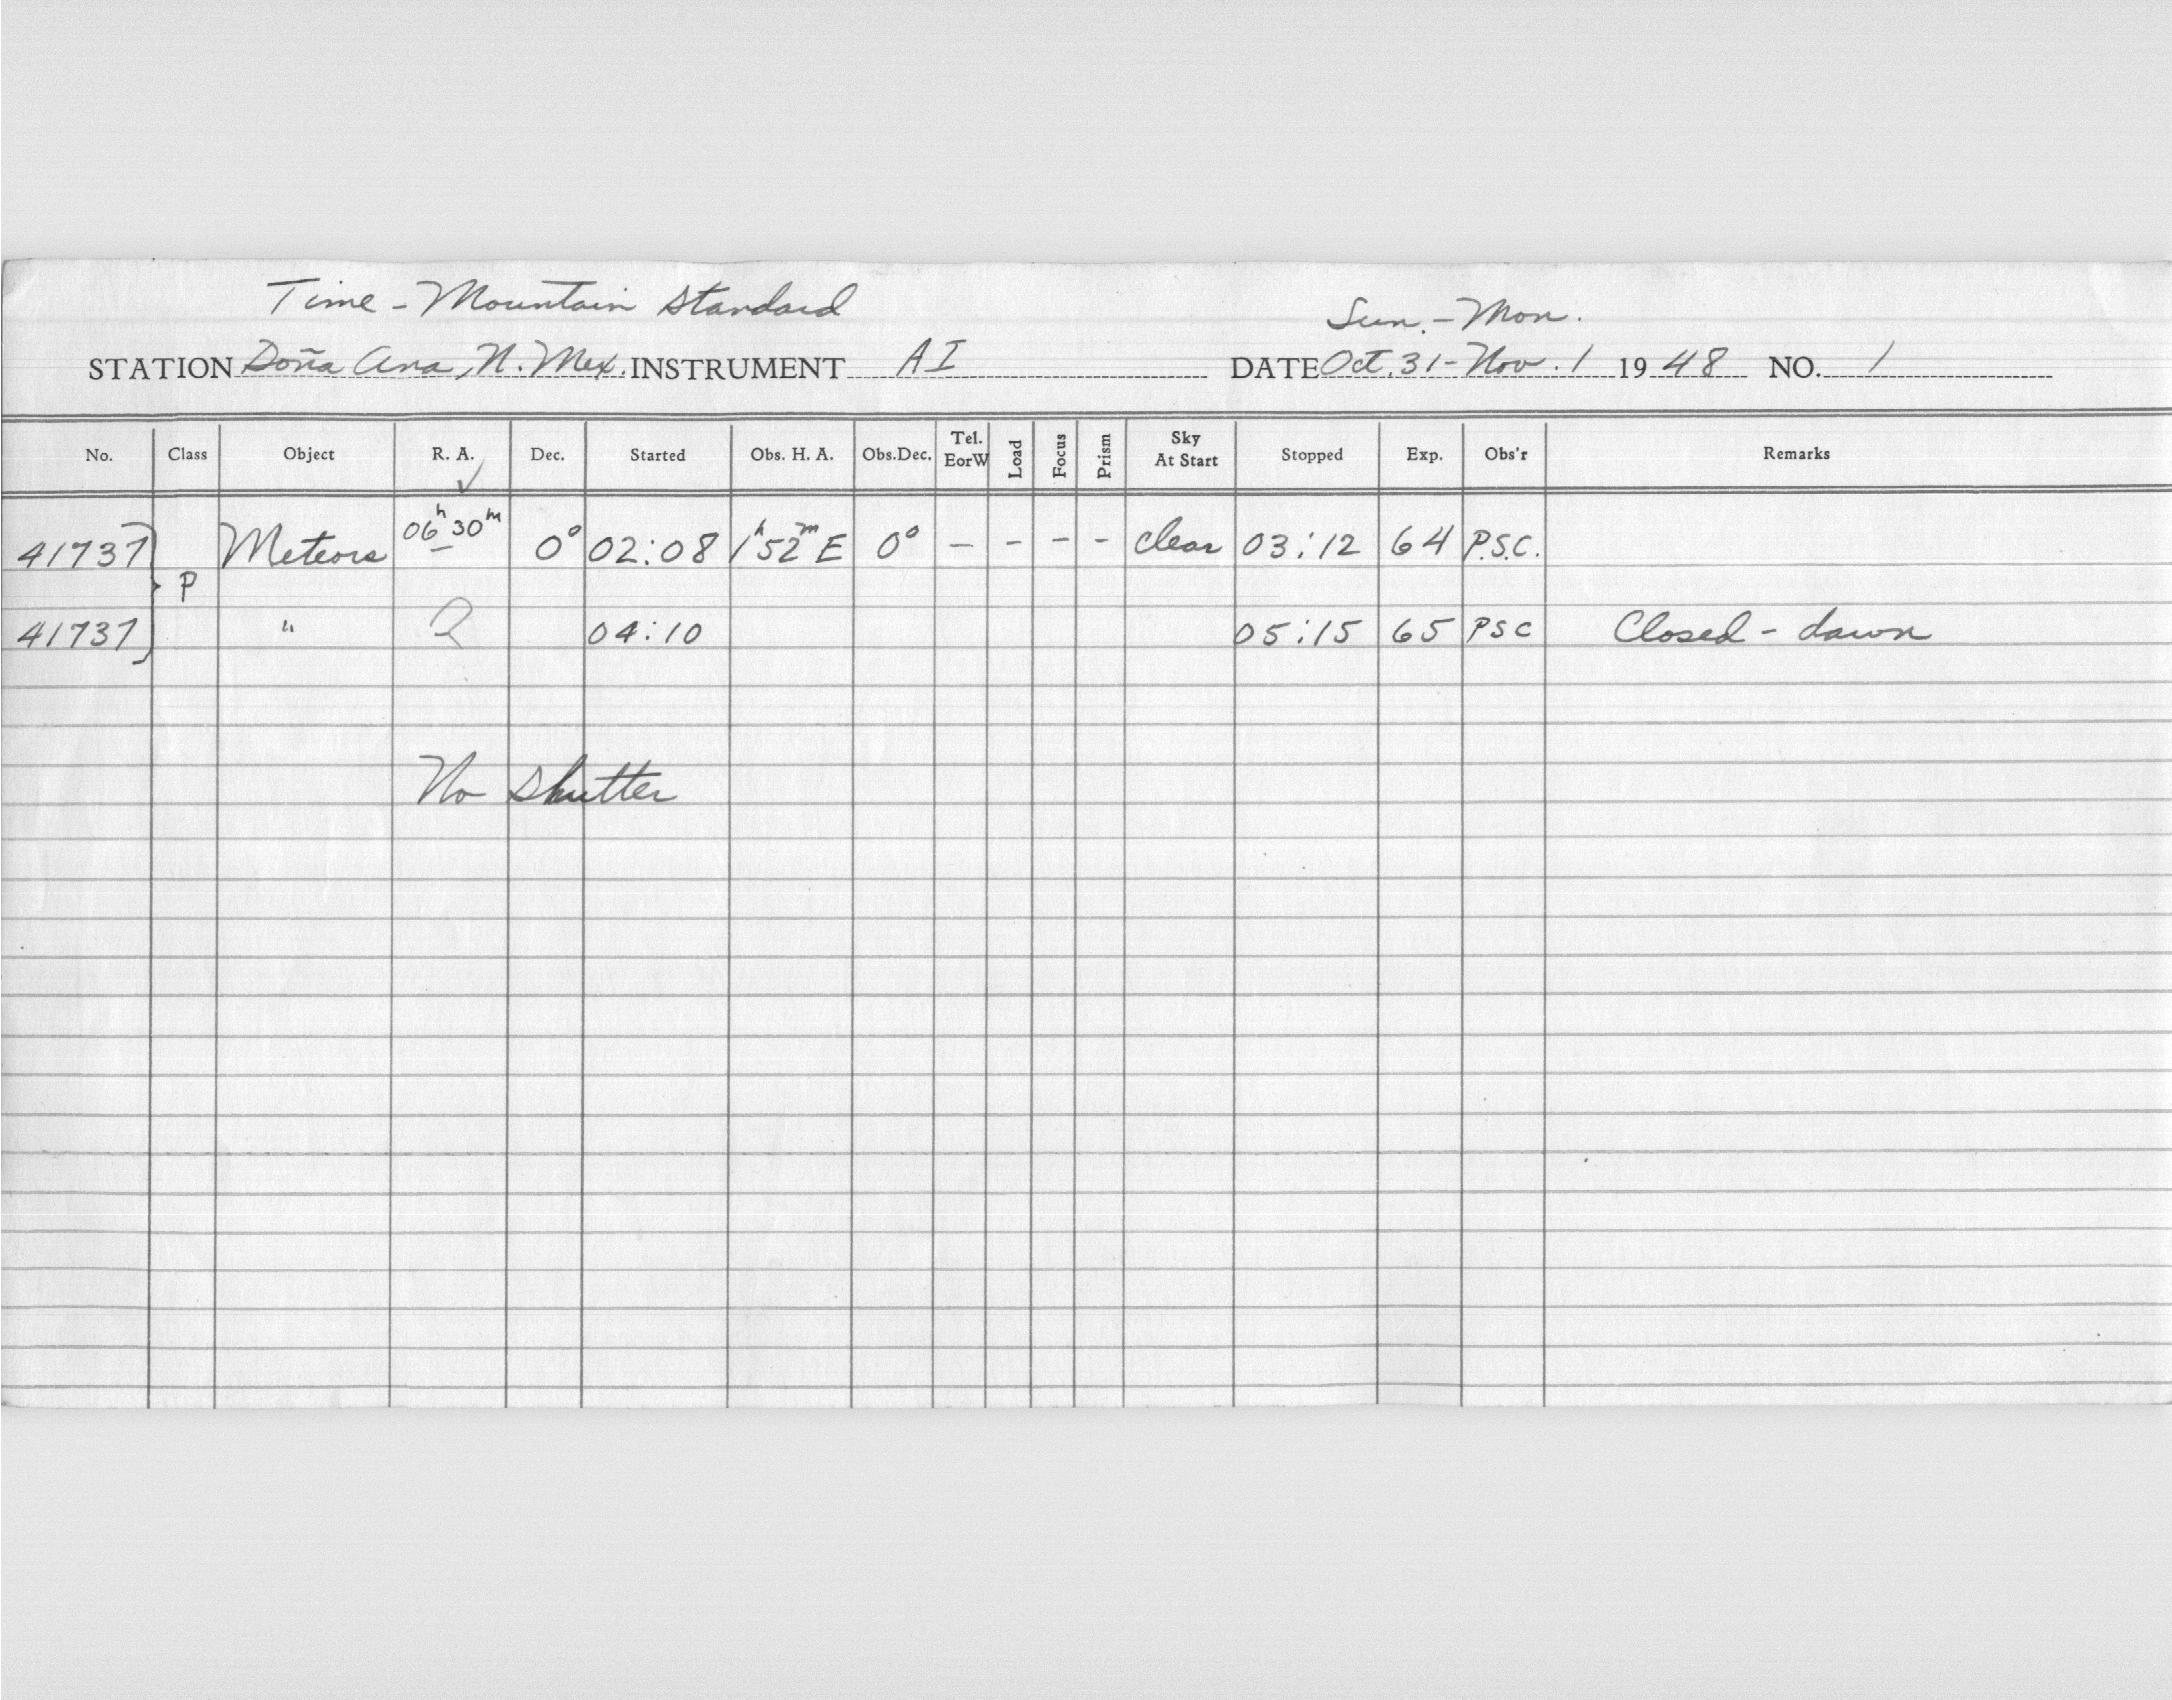 Time - Mountain Standard
Sun. - Mon.
STATION Doña Ana, N. Mex. INSTRUMENT AI DATE Oct. 31 - Nov. 1 1948 NO. 1
No. Class Object R. A. Dec. Started Obs. H. A. Obs.Dec. Tel. EorW Load Focus Prism Sky At Start Stopped Exp. Obs'r Remarks
✓
41737 Meteors 06h 30m 0° 02:08 1h 52m E 0° - - - - clear 03:12 64 P.S.C.
P
41737 " ? 04:10 05:15 65 PSC Closed - dawn
No Shutter